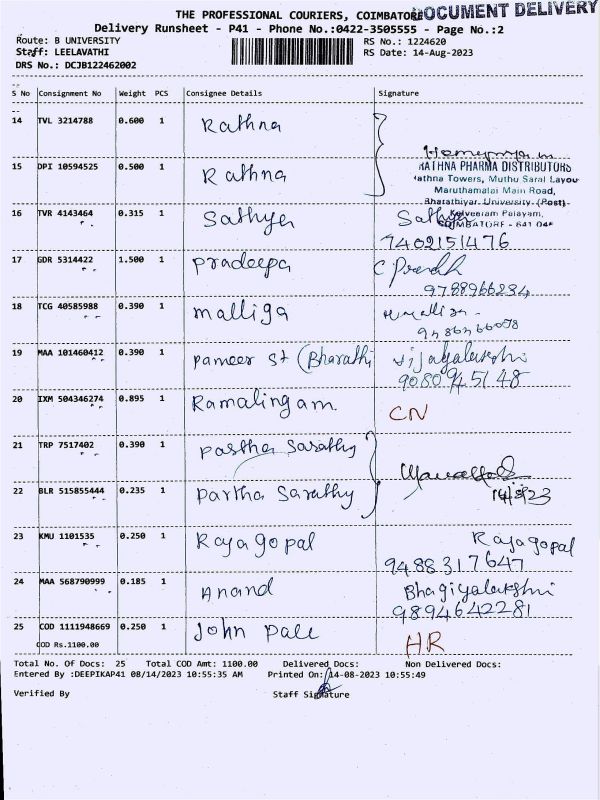 THE PROFESSIONAL COURIERS, COIMBATORE
DOCUMENT DELIVERY
Delivery Runsheet - P41 - Phone No.:0422-3505555 - Page No.:2
Route: B UNIVERSITY
RS No.: 1224620
Staff: LEELAVATHI
RS Date: 14-Aug-2023
DRS No.: DCJB122462002
S No Consignment No Weight PCS Consignee Details Signature
14 TVL 3214788 0.600 1 Rathna
RATHNA PHARMA DISTRIBUTORS
Rathna Towers, Muthu Saral Layou
Maruthamalai Main Road,
Bharathiyar University (Post)
Kalveeram Palayam,
COIMBATORE - 641 04
15 DPI 10594525 0.500 1 Rathna
16 TVR 4143464 0.315 1 Sathya Sathya
7402151476
17 GDR 5314422 1.500 1 Pradeepa C Pradeep
9788966234
18 TCG 40585988 0.390 1 malliga
19 MAA 101460412 0.390 1 pameer St (Bharathi Vijayalakshmi
9080945148
20 IXM 504346274 0.895 1 Ramalingam CN
21 TRP 7517402 0.390 1 Partha Sarathy
14/8/23
22 BLR 515855444 0.235 1 Partha Sarathy
23 KMU 1101535 0.250 1 Rajagopal Rajagopal
9488317647
24 MAA 568790999 0.185 1 Anand Bhagiyalakshmi
9894642281
25 COD 1111948669 0.250 1 John pall HR
COD Rs.1100.00
Total No. Of Docs: 25 Total COD Amt: 1100.00 Delivered Docs: Non Delivered Docs:
Entered By :DEEPIKAP41 08/14/2023 10:55:35 AM Printed On: 14-08-2023 10:55:49
Verified By Staff Signature